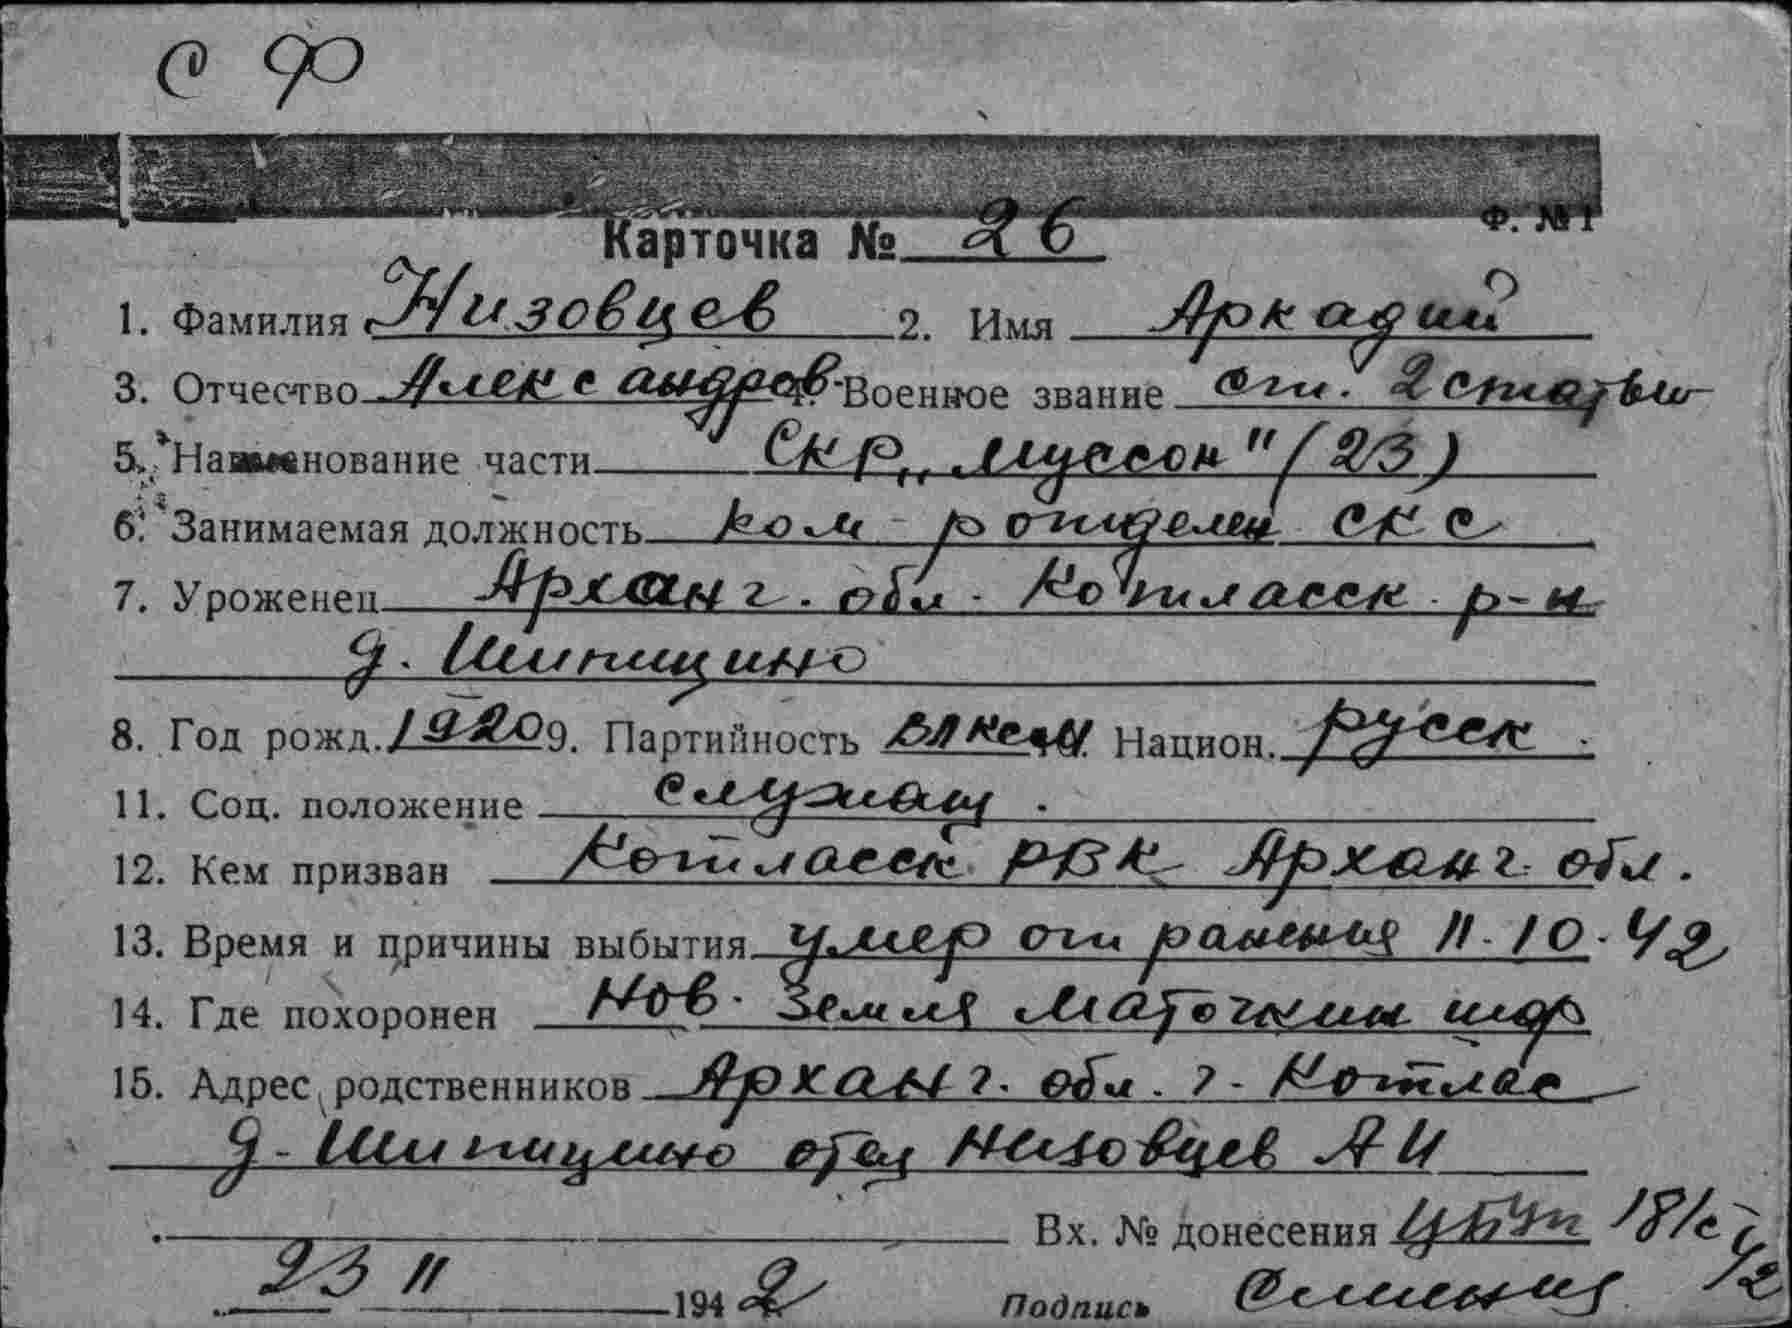 С Ф
Ф. № 1
Карточка № 26
1. Фамилия Низовцев 2. Имя Аркадий
3. Отчество Александров. 4. Военное звание ст. 2 статьи
5. Наименование части СКР „Муссон" (23)
6. Занимаемая должность ком-р отделен СКС
7. Уроженец Арханг. обл. Котласск. р-н
д. Шипицино
8. Год рожд. 1920 9. Партийность ВЛКСМ. Национ. русск.
11. Соц. положение служащ.
12. Кем призван Котласск РВК Арханг. обл.
13. Время и причины выбытия умер от ранения 11.10.42
14. Где похоронен Нов. Земля Маточкин шар
15. Адрес родственников Арханг. обл. г. Котлас
д. Шипицино отец Низовцев А И
Вх. № донесения 18/с
23 11 1942 Подпись